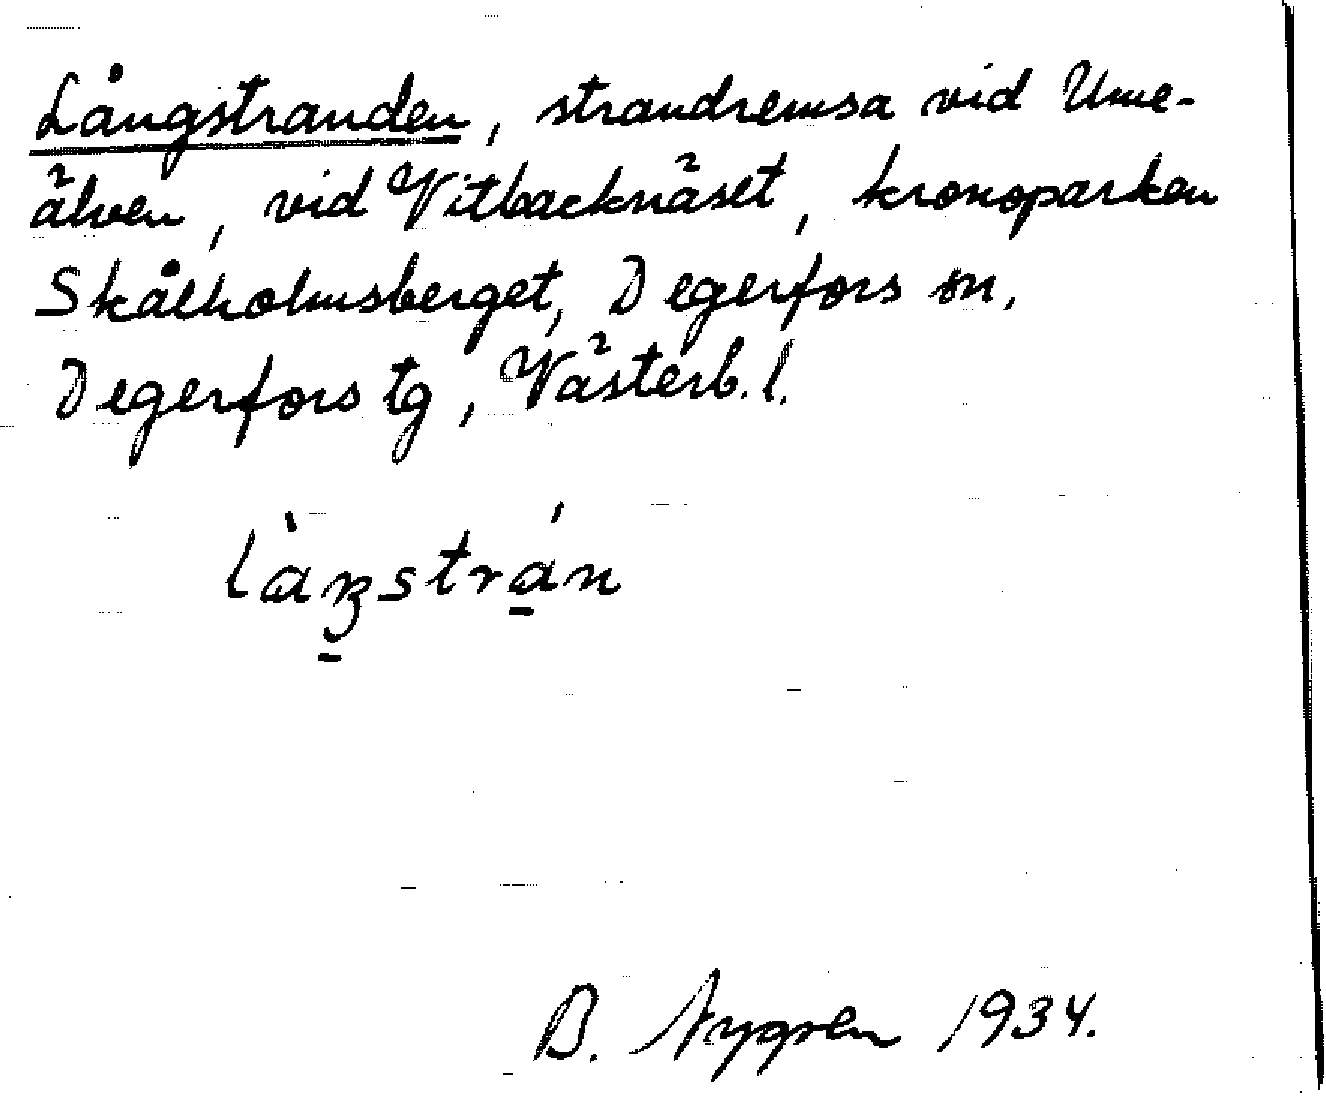 Långstranden, strandremsa vid Ume-
älven, vid Vitbacknäset, kronoparken
Skålholmsberget, Degerfors sn,
Degerfors tg, Västerb. l.
B. Nygren 1934.